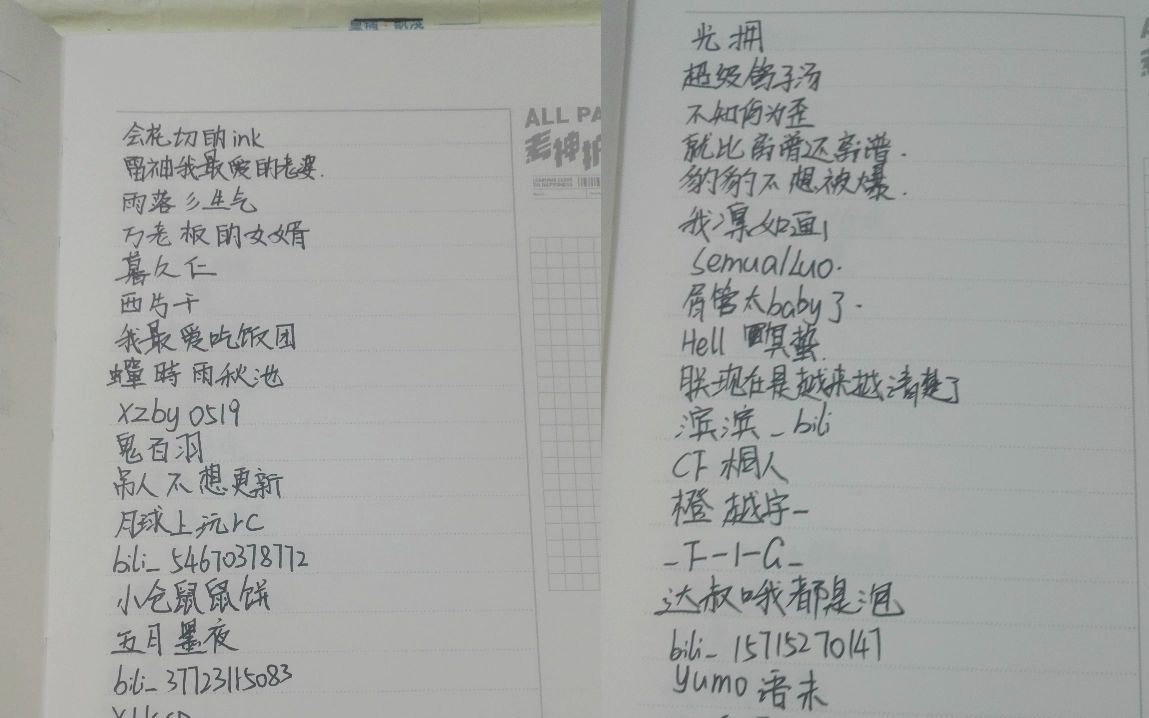 会花切的ink
雷神我最爱的老婆.
雨落彡生气
万老板的女婿
暮久仁
西片干
我最爱吃饭团
蟬時雨秋池
xzby0519
鬼百羽
吊人不想更新
月球上玩rC
bili_54670378772
小仓鼠鼠饼
五月墨夜
bili_37723115083
ALL PA
光拥
超级鸽子汤
不知何为歪
就比离谱还离谱.
豹豹不想被爆.
我凛如画
semualLuo.
屑管太baby了.
Hell 冥蛰
朕现在是越来越清楚了
滨滨_bili
CF 桐人
橙越宇_
_F-1-G_
达叔哦都是泡
bili_15715270147
Yumo语末